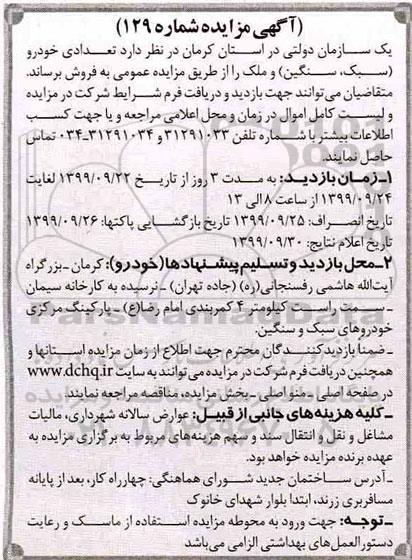 (آگهی مزایده شماره ۱۲۹)
یک سازمان دولتی در استان کرمان در نظر دارد تعدادی خودرو
(سبک، سنگین) و ملک را از طریق مزایده عمومی به فروش برساند.
متقاضیان می‌توانند جهت بازدید و دریافت فرم شرایط شرکت در مزایده
و لیست کامل اموال در زمان و محل اعلامی مراجعه و یا جهت کسب
اطلاعات بیشتر با شماره تلفن ۳۱۲۹۱۰۳۳ و ۳۱۲۹۱۰۳۴-۰۳۴ تماس
حاصل نمایند.
۱ـ زمان بازدید: به مدت ۳ روز از تاریخ ۱۳۹۹/۰۹/۲۲ لغایت
۱۳۹۹/۰۹/۲۴ از ساعت ۸ الی ۱۳
تاریخ انصراف: ۱۳۹۹/۰۹/۲۵ تاریخ بازگشایی پاکتها: ۱۳۹۹/۰۹/۲۶
تاریخ اعلام نتایج: ۱۳۹۹/۰۹/۳۰
۲ـ محل بازدید و تسلیم پیشنهادها (خودرو): کرمان ـ بزرگراه
آیت‌الله هاشمی رفسنجانی(ره) (جاده تهران) ـ نرسیده به کارخانه سیمان
ـ سمت راست کیلومتر ۴ کمربندی امام رضا(ع) ـ پارکینگ مرکزی
خودروهای سبک و سنگین.
ـ ضمنا بازدیدکنندگان محترم جهت اطلاع از زمان مزایده استانها و
همچنین دریافت فرم شرکت در مزایده می‌توانند به سایت www.dchq.ir
در صفحه اصلی ـ منو اصلی ـ بخش مزایده، مناقصه مراجعه نمایند.
ـ کلیه هزینه‌های جانبی از قبیل: عوارض سالانه شهرداری، مالیات
مشاغل و نقل و انتقال سند و سهم هزینه‌های مربوط به برگزاری مزایده به
عهده برنده مزایده خواهد بود.
ـ آدرس ساختمان جدید شورای هماهنگی: چهارراه کار، بعد از پایانه
مسافربری زرند، ابتدا بلوار شهدای خانوک
ـ توجه: جهت ورود به محوطه مزایده استفاده از ماسک و رعایت
دستورالعمل‌های بهداشتی الزامی می‌باشد